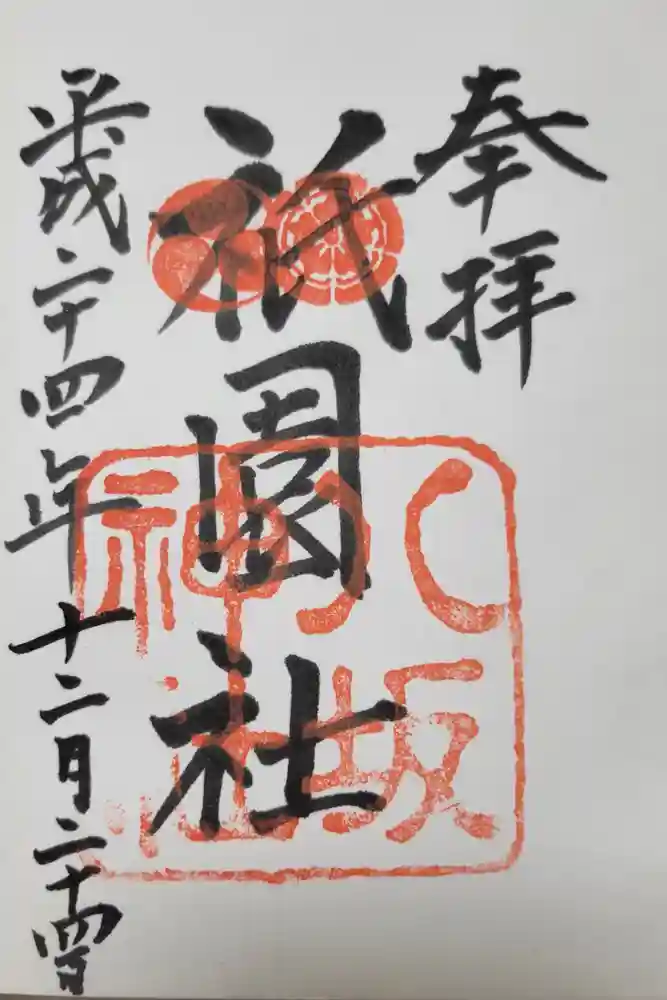 奉拝
祇園社
八坂
神社
平成二十四年十二月二十四日